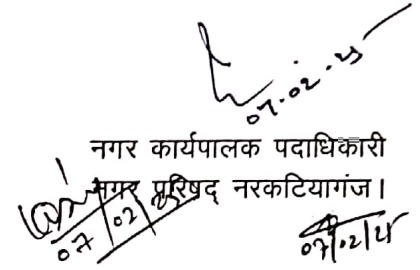 07.02.25
नगर कार्यपालक पदाधिकारी
नगर परिषद् नरकटियागंज।
07/02/25
07/02/25